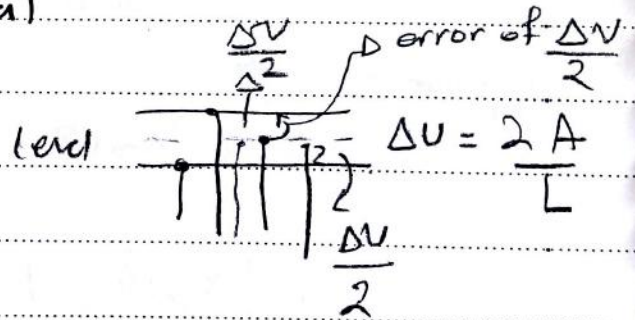 a)
ΔV/2
error of ΔV/2
level
ΔU = 2A/L
ΔV/2